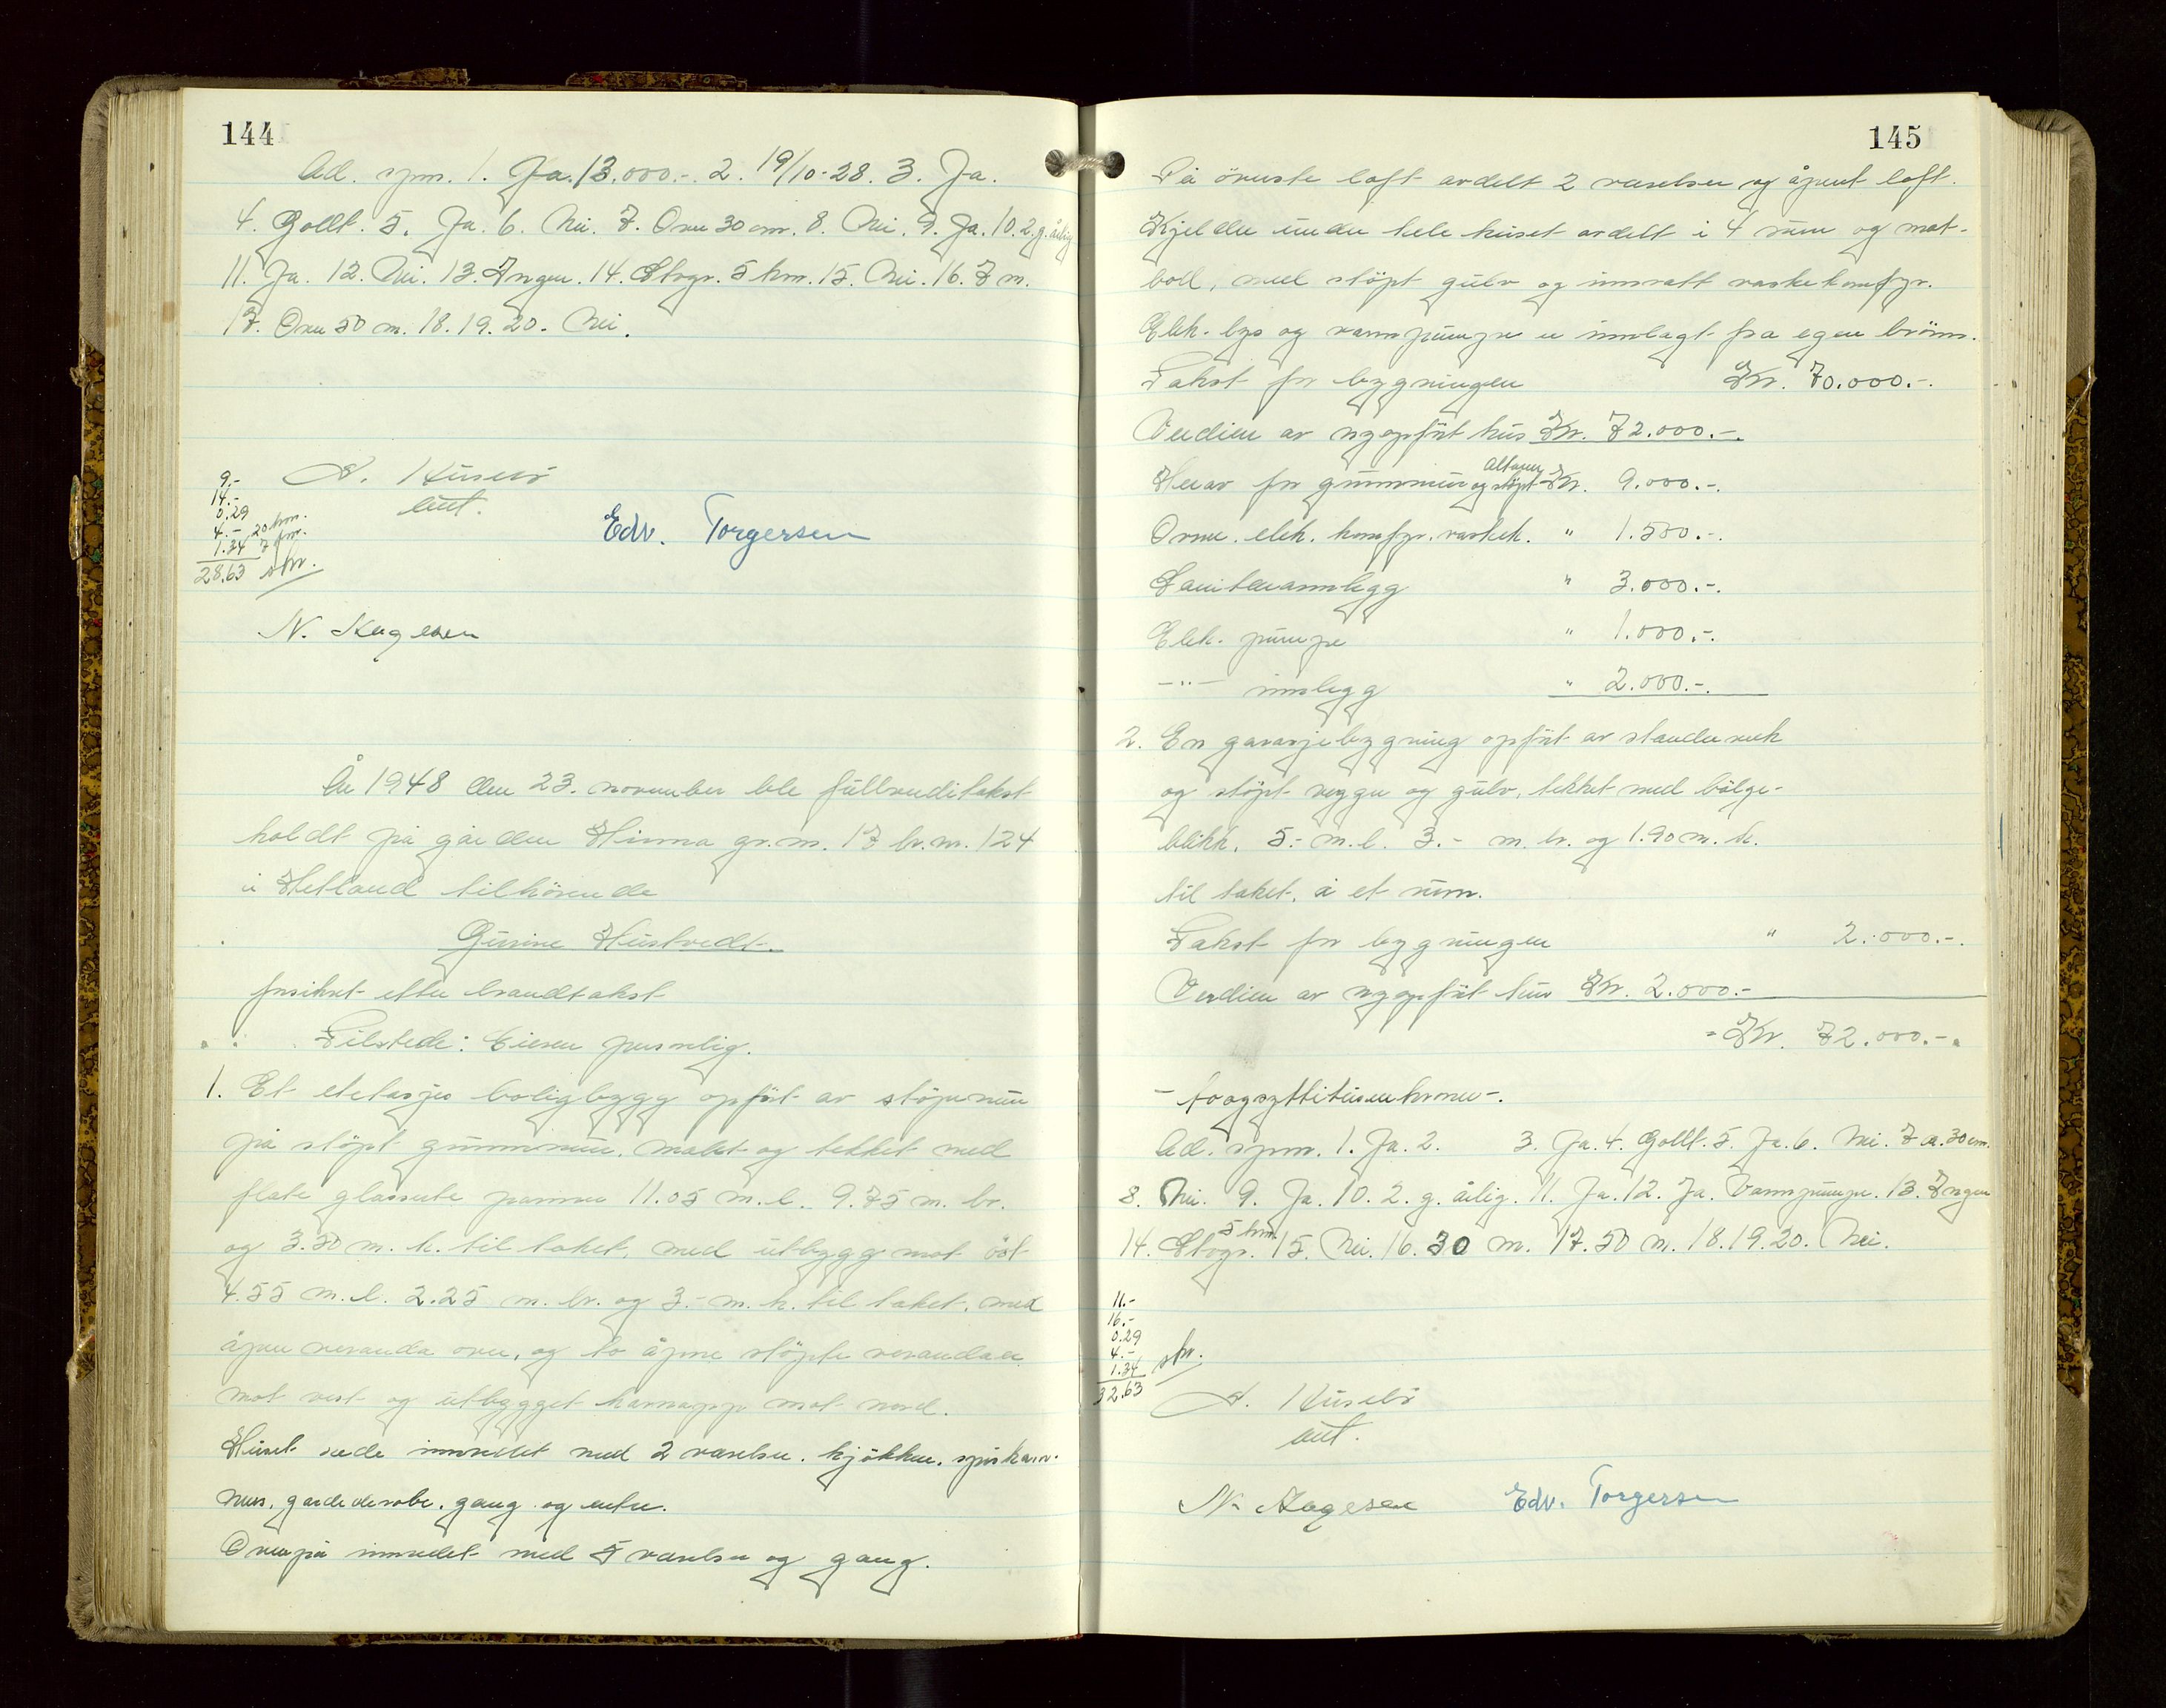 144
Ad. spm. 1. Ja. 13.000.-. 2. 19/10-28. 3. Ja.
4. Gollt. 5. Ja. 6. Nei. 7. Over 30 cm. 8. Nei. 9. Ja. 10. 2. g. årlig
11. Ja. 12. Nei. 13. Ingen. 14. Stvgr. 5 km. 15. Nei. 16. 7 m.
17. Over 50 m. 18. 19. 20. Nei.
9.-
14.-
0.29
4.- 20 km.
1.34 7 km.
28.63 skr.
A. Husebø
aut.
Edv. Torgersen
N. Aagesen
År 1948 den 23. november ble fullverditakst
holdt på gården Hinna gr.nr. 17 br.nr. 124
i Hetland tilhörende
Gurine Hustvedt.
forsikret etter brandtakst
Tilstede: Eieren personlig.
1. Et etetasjes boligbygg opfört av støperur
på støpt grunnmur, malet og tekket med
flate glaserte panner 11.05 m.l. 9.75 m. br.
og 3.30 m. h. til taket, med utbygg mot öst
4.55 m.l. 2.25 m. br. og 3.- m. h. til taket, med
åpen veranda over, og to åpne støpte verandaer
mot vest og utbygget karnapp mot nord.
Huset nede innredet med 2 værelser, kjøkken, spiskam-
mer, garderobe, gang og entre.
Ovenpå innredet med 5 værelser og gang.
145
På øverste loft avdelt 2 værelser og åpent loft.
Kjeller under hele huset avdelt i 4 rum og mat-
bod, med støpt gulv og innsatt vaskekomfyr.
Elek. lys og vannpumpe er innlagt fra egen brönn.
Takst for bygningen Kr. 70.000.-.
Verdien av nyopfört hus Kr. 72.000.-.
Herav for grunnmur og støpt altan Kr. 9.000.-.
Ovne. elek. komfyr. vaskek. " 1.500.-.
Sanitæranlegg " 3.000.-.
Elek. pumpe " 1.000.-.
-"- innlegg " 2.000.-.
2. En garasjebygning opfört av stenderverk
og støpt vegger og gulv, tekket med bölge-
blikk. 5.- m.l. 3.- m. br. og 1.90 m. h.
til taket, i et rum.
Takst for bygningen " 2.000.-.
Verdien av nyopfört hus Kr. 2.000.-
= Kr. 72.000.-.
- toogsyttitusenkroner -.
Ad. spm. 1. Ja. 2. 3. Ja. 4. Gollt. 5. Ja. 6. Nei. 7. a. 30 cm.
8. Nei. 9. Ja. 10. 2. g. årlig. 11. Ja. 12. Ja. Vannpumpe. 13. Ingen
14. Stvgr. 5 km. 15. Nei. 16. 30 m. 17. 50 m. 18. 19. 20. Nei.
11.-
16.-
0.29
4.-
1.34 skr.
32.63
A. Husebø
aut.
N. Aagesen Edv. Torgersen